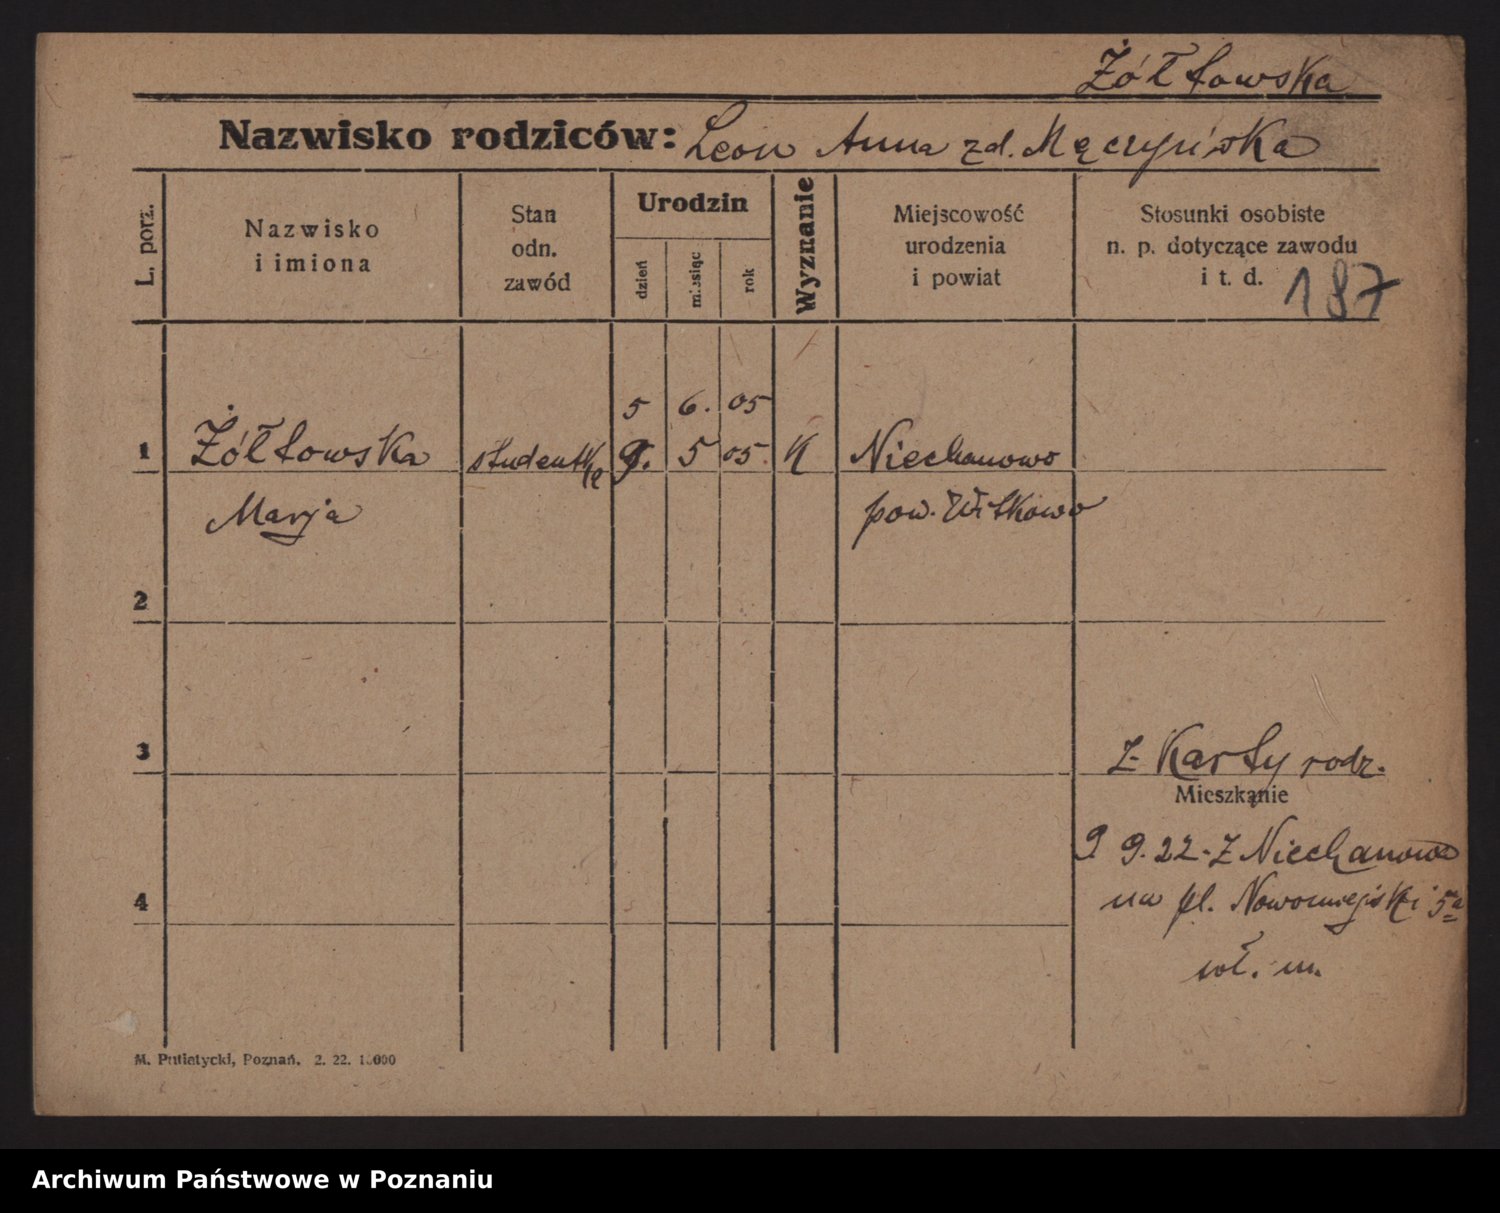 Żółtowska
Nazwisko rodziców: Leon Anna zd. Męczyńska
L. porz.
Nazwisko
i imiona
Stan
odn.
zawód
Urodzin
dzień
miesiąc
rok
Wyznanie
Miejscowość
urodzenia
i powiat
Stosunki osobiste
n. p. dotyczące zawodu
i t. d.
187
5 6. 05
1 Żółtowska studentka 9. 5 05 K Niechanowo
Marja pow. Witkowo
2
3
Z Karty rodz.
Mieszkanie
9 9.22 - Z Niechanowo
na pl. Nowomiejski 5a
4
wł. m.
M. Putiatycki, Poznań. 2. 22. 1.000
Archiwum Państwowe w Poznaniu